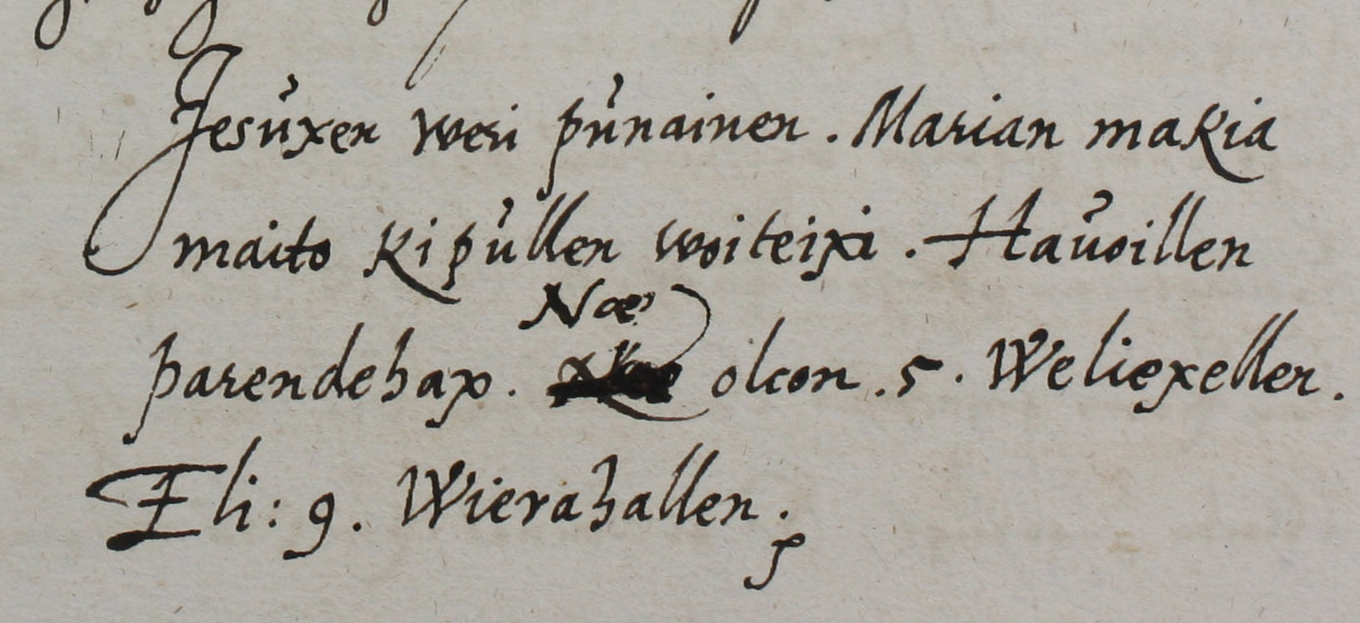 Jesuxen weri punainen. Marian makia
maito kipullen woiteixi. Hauoillen
parendehax. Nœ olcon .5. Weliexellen.
Eli: 9. Wierahallen.